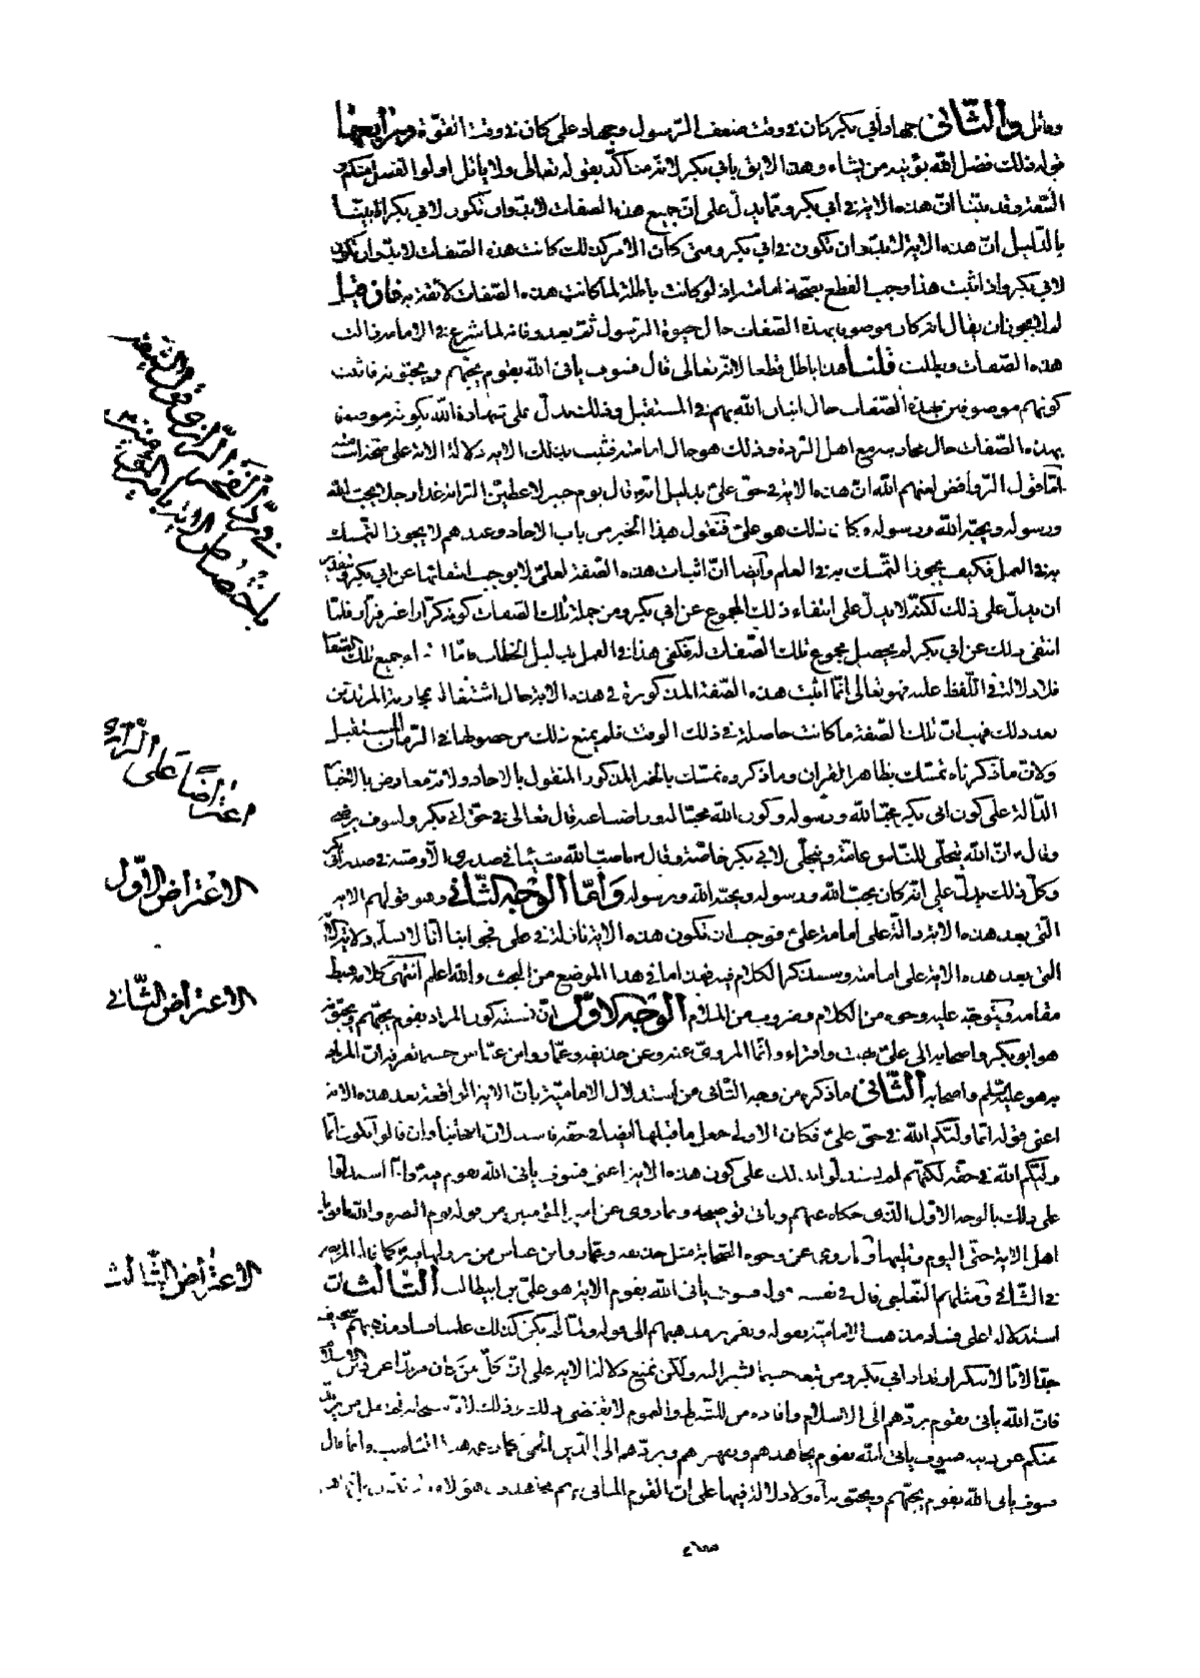 وقاتل والثاني جهاد أبي بكر كان في وقت ضعف الرسول وجهاد علي كان في وقت القوة ورابعها
قوله ذلك فضل الله يؤتيه من يشاء وهذا لايق بأبي بكر لانه متأكد بقوله تعالى ولا يأتل اولوا الفضل منكم و
السعة وقد بينا ان هذه الاية في ابي بكر ومما يدل على ان جميع هذه الصفات لا بد وان تكون لابي بكر انا بينا
بالدليل ان هذه الاية لا بد وان تكون في ابي بكر ومتى كان الامر كذلك كانت هذه الصفات لا بد وان تكون
لابي بكر واذا ثبت هذا وجب القطع بصحة امامته اذ لو كانت باطلة لما كانت هذه الصفات لائقة به فان قيل
لم لا يجوز ان يقال انه كان موصوفا بهذه الصفات حال حيوة الرسول ثم بعد وفاته لما شرع في الامامة زالت
هذه الصفات وبطلت قلنا هذا باطل قطعا لانه تعالى قال فسوف يأتي الله بقوم يحبهم ويحبونه فاثبت
كونهم موصوفين بهذه الصفات حال اتيان الله بهم في المستقبل وذلك يدل على شهادة الله بكونه موصوفا
بهذه الصفات حال محاربته مع اهل الردة وذلك هو حال امامته فثبت بذلك الاية دلالة الاية على صحة امامته
اما قول الروافض لعنهم الله ان هذه الاية في حق علي بدليل انه قال يوم خيبر لاعطين الراية غدا رجلا يحب الله
ورسوله ويحبه الله ورسوله وكان ذلك هو علي فنقول هذا الخبر من باب الاحاد وعندهم لا يجوز التمسك
به في العمل فكيف يجوز التمسك به في العلم وأيضا ان اثبات هذه الصفة لعلي لا يوجب انتفائها عن ابي بكر وبتقدير
ان يدل على ذلك لكنه لا يدل على انتفاء ذلك المجموع عن ابي بكر ومن جملة تلك الصفات كونه كرارا غير فرار فلما
انتفى ذلك عن ابي بكر لم يحصل مجموع تلك الصفات له فكفى هذا في العمل بدليل الخطاب فاما جميع تلك الصفات
فلا دلالة في اللفظ عليه فهو تعالى انما اثبت هذه الصفة المذكورة في هذه الاية حال اشتغاله بمحاربة المرتدين
بعد ذلك فهب ان تلك الصفة ما كانت حاصلة في ذلك الوقت فلم يمنع ذلك من حصولها في الزمان المستقبل
ولان ما ذكرناه تمسك بظاهر القران وما ذكروه تمسك بالخبر المذكور المنقول بالاحاد ولانه معارض بالاخبار
الدالة على كون ابي بكر محبا لله ورسوله وكون الله محبا له وراضيا عنه قال تعالى في حق ابي بكر ولسوف يرضى
وقال ان الله يتجلى للناس عامة ويتجلى لابي بكر خاصة وقال ما صب الله شيئا في صدري الا وصبه في صدر ابي بكر
وكل ذلك يدل على انه كان يحب الله ورسوله ويحبه الله ورسوله وأما الوجه الثاني وهو قولهم الاية
التي بعد هذه الاية دالة على امامة علي فوجب ان تكون هذه الاية نازلة في علي فجوابنا انا لا نسلم دلالة
التي بعد هذه الاية على امامته وسنذكر الكلام فيه فهذا ما في هذا الموضع من البحث والله اعلم انتهى كلامه
مقامه ويتوجه عليه وجوه من الكلام وضروب من الملام الوجه الاول ان نسبة كون المراد بقوم يحبهم ويحبونه
هو ابو بكر واصحابه الى علي بهت وافتراء وانما المروي عنه وعن حذيفة وعمار وابن عباس حسبما تعرفه ان المراد
به هو عليه السلم واصحابه الثاني ما ذكره من وجه الثاني من استدلال الامامية بان الاية الواقعة بعد هذه الاية
اعني قوله انما وليكم الله في حق علي فكان الاولى جعل ما قبلها ايضا في حقه فاسد لان اصحابنا وان قالوا بكون انما
وليكم الله في حقه لكنهم لم يستدلوا بذلك على كون هذه الاية اعني فسوف يأتي الله بقوم فيه وانما استدلوا
على ذلك بالوجه الاول الذي حكاه عنهم ويأتي توضيحه وبما روي عن امير المؤمنين من قوله يوم البصرة والله ما قوتل
اهل الاية حتى اليوم وتلاها وما روي عن وجوه الصحابة مثل حذيفة وعمار وابن عباس من نزولها فيه كما قاله المرتضى
في الشافي ومثلهم الثعلبي قال في تفسير قوله فسوف يأتي الله بقوم الاية هو علي بن ابيطالب الثالث ان
استدلاله على فساد مذهب الامامية بقوله وتقرير مذهبهم الى قوله ولما لم يكن كذلك علمنا فساد مذهبهم سخيف
جدا لانا لا ننكر ارتداد ابي بكر ومن تبعه حسبما نشير اليه ولكن نمنع دلالة الاية على ان كل من كان مرتدا عن دين الاسلام
فان الله يأتي بقوم يردهم الى الاسلام وافادة من للشرط والعموم لا يقتضي ذلك وذلك لانه سبحانه لم يقل من يرتد
منكم عن دينه فسوف يأتي الله بقوم يجاهدهم ويقهرهم ويردهم الى الدين كما زعمه هذا الناصب وانما قال
فسوف يأتي الله بقوم يحبهم ويحبونه ولا دلالة فيها على ان القوم المأتي بهم مجاهدون
في رد الفخر الرازي قول الشيعة
باختصاص الاية بامير المؤمنين
اعتراضا على الرازي
الاعتراض الاول
الاعتراض الثاني
الاعتراض الثالث